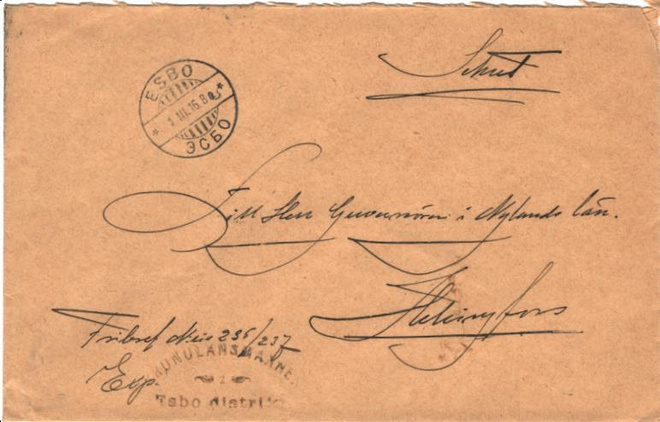 ESBO
1.III.16.8
ЭСБО
Till Herr Guvernören i Nylands län.
Helsingfors
Fribref No 236/237
Exp.
KRONOLÄNSMANNEN
i
Esbo distrikt